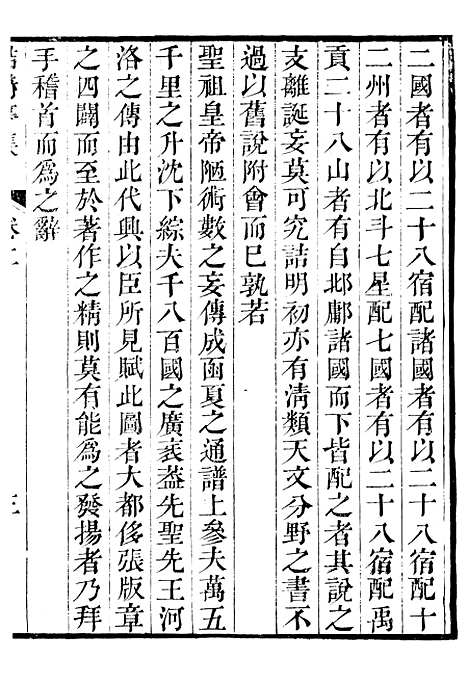 二國者有以二十八宿配諸國者有以二十八宿配十
二州者有以北斗七星配七國者有以二十八宿配禹
貢二十八山者有自邶鄘諸國而下皆配之者其說之
支離誕妄莫可究詰明初亦有淸類天文分野之書不
過以舊說附會而已孰若
聖祖皇帝陋術數之妄傳成函夏之通譜上參夫萬五
千里之升沈下綜夫千八百國之廣袤蓋先聖先王河
洛之傳由此代興以臣所見賦此圖者大都侈張版章
之四闢而至於著作之精則莫有能爲之發揚者乃拜
手稽首而爲之辭
亭集
卷二
三